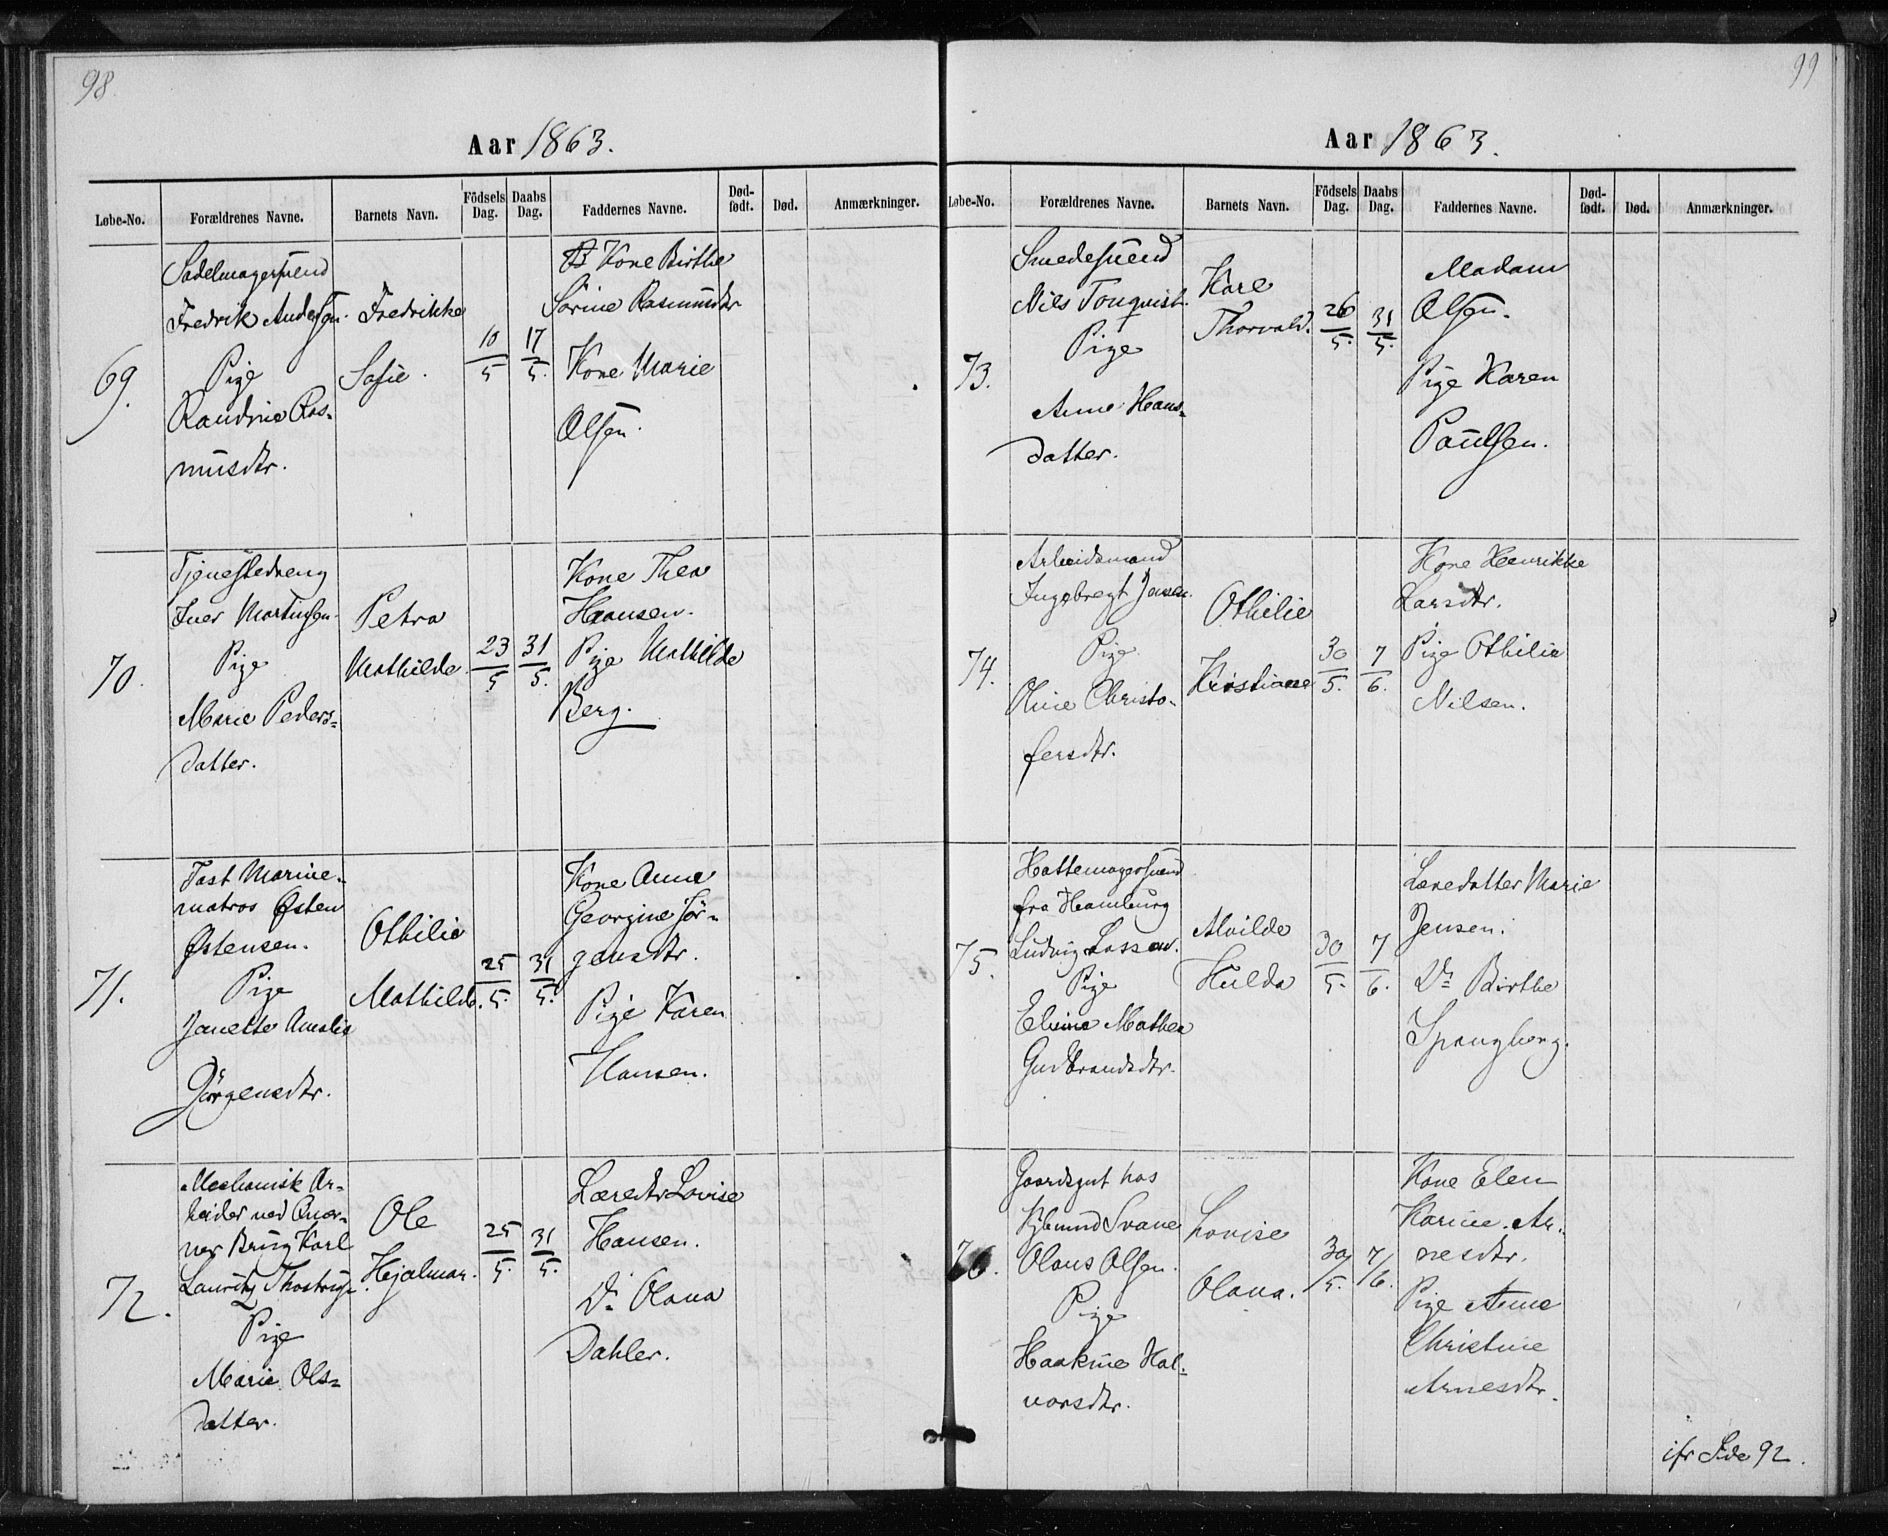 98.
Aar 1863.
Løbe-No.
Forældrenes Navne.
Barnets Navn.
Födsels Dag.
Daabs Dag.
Faddernes Navne.
Død-født.
Død.
Anmærkninger.
69.
Sadelmagersvend
Fredrik Andersen.
Pige
Randine Ras-
musdtr.
Fredrikke
Sofie.
10/5
17/5.
Kone Birthe
Sörine Rasmusdtr
Kone Marie
Olsen.
70.
Tjenestedreng
Iver Martinsen.
Pige
Marie Peders-
datter.
Petra
Mathilde
23/5
31/5.
Kone Thea
Hansen.
Pige Mathilde
Berg.
71.
Fast Marine-
matros Østen
Østensen.
Pige
Janette Amalia
Jörgensdtr.
Othilie
Mathilde.
25/5.
31/5.
Kone Anne
Georgine Jör-
gensdtr.
Pige Karen
Hansen.
72.
Mechanisk Ar-
beider ved
Brug Karl
Lauritz
Pige
Marie Ols-
datter.
Ole
Hjalmar.
25/5.
31/5.
Læredtr Lovise
Hansen.
Do Olava
Dahler.
99
Aar 1863.
Løbe-No.
Forældrenes Navne.
Barnets Navn.
Födsels Dag.
Daabs Dag.
Faddernes Navne.
Død-født.
Død.
Anmærkninger.
73.
Smedesvend
Nils Tonquist.
Pige
Anne Hans-
datter.
Karl
Thorvald.
26/5.
31/5.
Madam
Olsen.
Pige Karen
Paulsen.
74.
Arbeidsmand
Ingebregt Jensen.
Pige
Oline Christo-
fersdtr.
Othilie
Kristiane
30/5.
7/6.
Kone Henrikke
Larsdtr.
Pige Othilie
Nilsen.
75.
Hattemagersvend
fra Hamburg
Ludvig Lassen.
Pige
Eline Mathea
Gudbrandsdtr.
Alvilde
Hulda
30/5.
7/6.
Læredatter Marie
Jensen.
Do Birthe
Spangberg.
76.
Gaardsgut hos
Svane
Olaus Olsen.
Pige
Haakine Hal-
vorsdtr.
Lovise
Olava.
30/5.
7/6.
Kone Elen
Karine Ar-
nesdtr.
Pige Anne
Christine
Arnesdtr.
ifr Side 92.